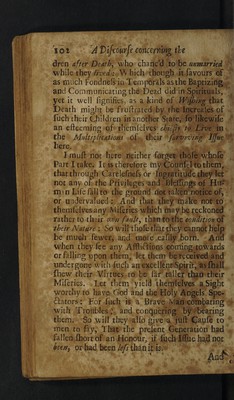 102 A Discourse concerning the
dren after Death, who chanc'd to be unmarried
while they lived: Which though it favours of
as much Fondness in Temporals as the Baptizing
and Communicating the Dead did in Spirituals,
yet it well signifies, as a kind of Wishing that
Death might be frustrated by the Increases of
such their Children in another State, so likewise
an esteeming of themselves also still to Live in
the Multiplications of their surviving Issue
here.
I must not here neither forget those whose
Part I take. It is therefore my Counsel to them,
that through Carelesness or Ingratitude they let
not any of the Privileges and blessings of
in Life fall to the ground not taken notice of,
or undervalued: And that they make not to
themselves any Miseries which may be reckoned
rather to their own Fault, than to the condition of
their Nature: So will those that they cannot help
be much fewer, and more easily born. And
when they see any Afflictions coming towards
or falling upon them, let them be received and
undergone with such an excellent Spirit, as shall
shew their Virtues to be far fuller than their
Miseries. Let them yield themselves a Sight
worthy to have God and the Holy Angels Spe-
ctators: For such is a Brave Man combating
with Troubles, and conquering by bearing
them. So will they also give a just Cause to
men to say, That the present Generation had
fallen short of an Honour, if such Issue had not
been, or had been less than it is.
And